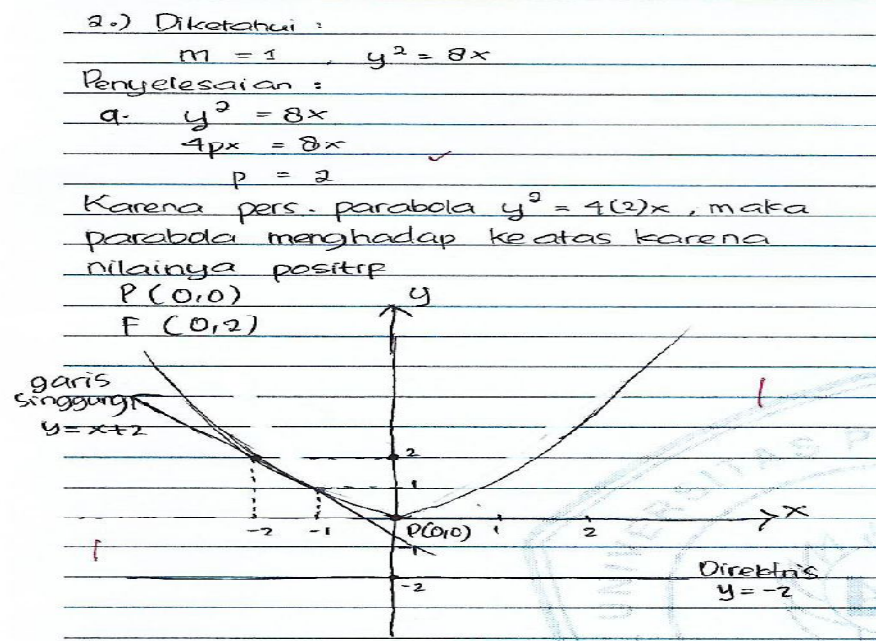 2.) Diketahui :
m = 1 , y² = 8x
Penyelesaian :
a. y² = 8x
4px = 8x
p = 2
Karena pers. parabola y² = 4(2)x, maka
parabola menghadap keatas karena
nilainya positif
P (0,0)
F (0,2)
y
garis
singgung
y = x+2
2
1
-2 -1 P(0,0) 1 2 x
-1
-2
Direktris
y = -2
UNIVERSITAS P